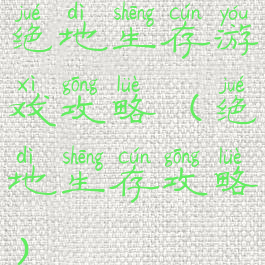 jué dì shēng cún yóu
绝地生存游
xì gōng lüè jué
戏攻略(绝
dì shēng cún gōng lüè
地生存攻略
)